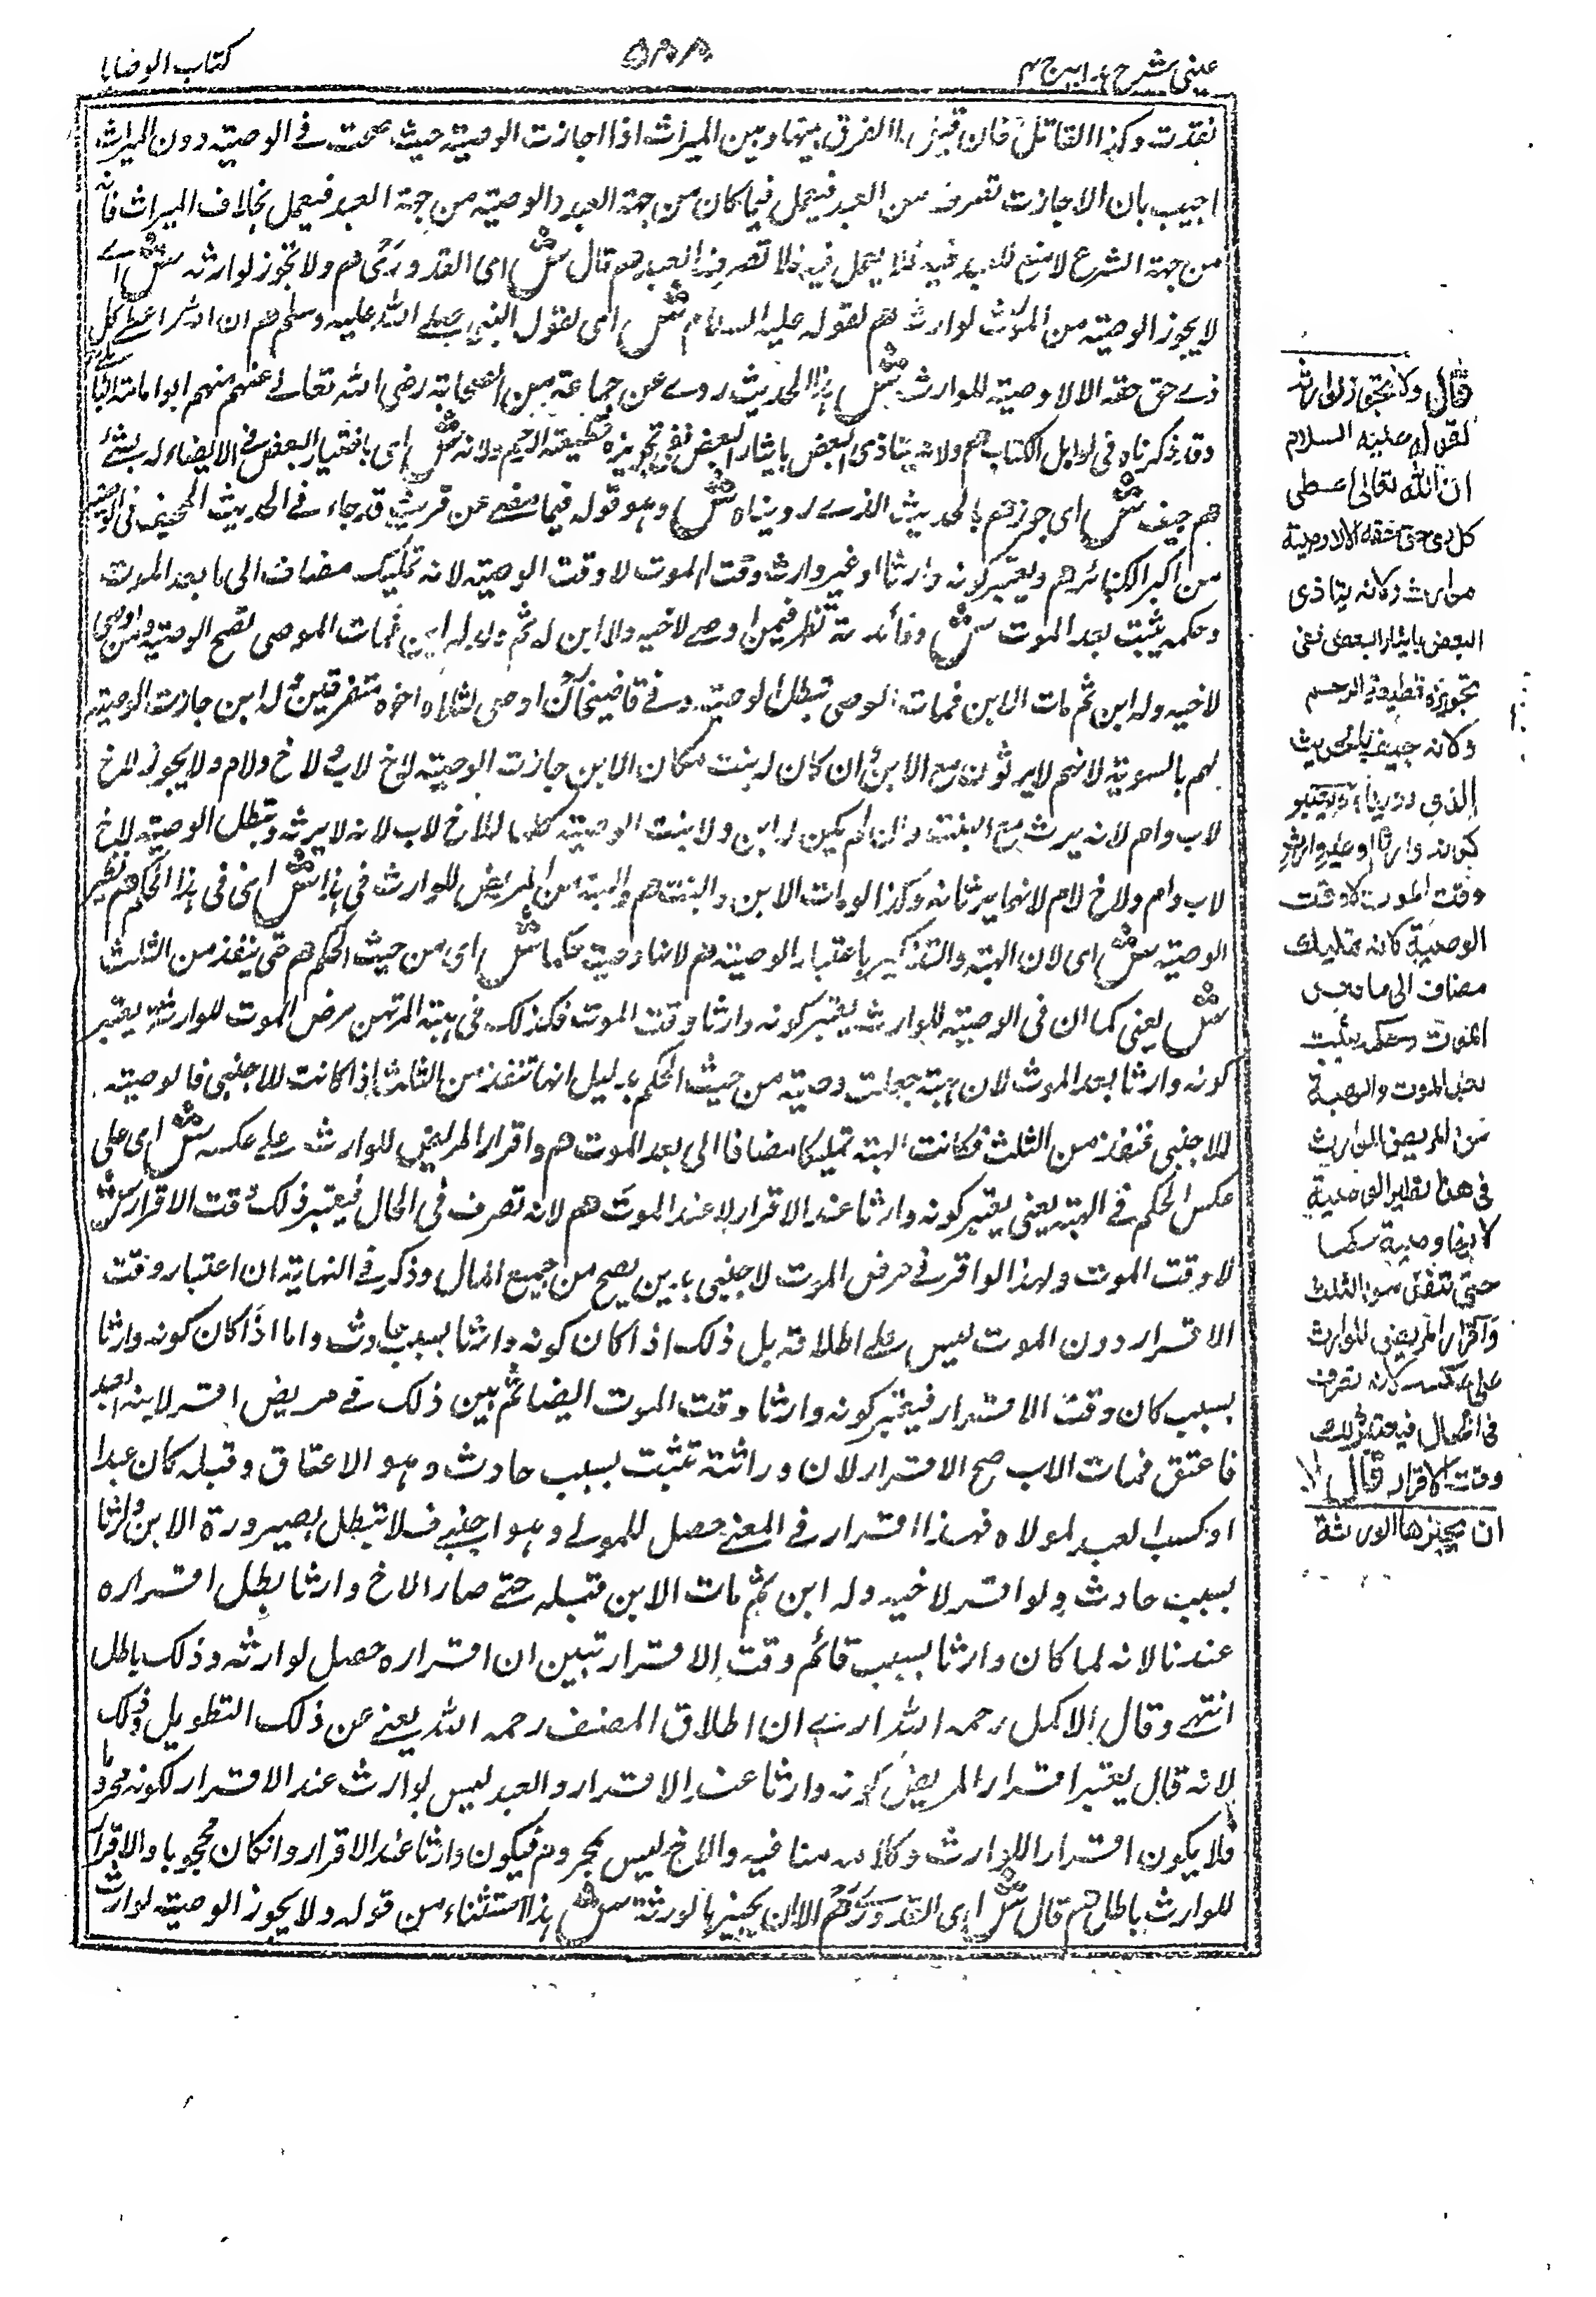 عینی شرح هدایه ج ۴
۵۸۸
کتاب الوصایا
نفذت وكذا القاتل فان قيل ما الفرق بينها وبين الميراث اذا اجازت الوصية حيث صحت فى الوصية دون الميراث
اجيب بان الاجازت تصرف من العبد فيعمل فيما كان من جهة العبد والوصية من جهة العبد فيعمل بخلاف الميراث فانه
من جهة الشرع لا صنع للعبد فيه فلا يعمل فيه تصرف العبد هم قال ش اى القدورى هم ولا تجوز لوارثه ش اے
لا يجوز الوصية من المورث لوارث هم لقوله عليه السلام ش اى لقول النبى صلے الله عليه وسلم هم ان الله اعطے كل
ذے حق حقه الا لا وصية للوارث ش هذا الحديث روے عن جماعة من الصحابة رضى الله تعالے عنهم منهم ابو امامة الباهلى
وقد ذكرناه فى اوايل الكتاب هم ولانه يتاذى البعض بايثار البعض ففى تجويزه قطيعة الرحم ولانه ش اى باختيار البعض فى الايصاء له بشئ
هم حيف ش اى جور هم بالحديث الذے رويناه ش وهو قوله فيما مضے عن قريب قد جاء فى الحديث الحيف فى الوصية
من اكبر الكبائر هم ويعتبر كونه وارثا او غير وارث وقت الموت لا وقت الوصية لانه تمليك مضاف الى ما بعد الموت
وحكمه يثبت بعد الموت ش وفائدته تظهر فيمن اوصے لاخيه ولا ابن له ثم ولد له ابن فمات الموصى تصح الوصية ومن اوصى
لاخيه وله ابن ثم مات الابن فمات الموصى تبطل الوصية وفے قاضيخان اوصى لثلاثه اخوه متفرقين وله ابن جازت الوصية
لهم بالسوية لانهم لا يرثون مع الابن وان كان له بنت مكان الابن جازت الوصية لاخ لاب ولاخ ولام ولا يجوز لاخ
لاب وام لانه يرث مع البنت وان لم يكن له ابن ولا بنت الوصية كلها للاخ لاب لانه لا يرثه وتبطل الوصية لاخ
لاب وام ولاخ لام لانهما يرثانه وكذا لو مات الابن والبنت هم والهبة من المريض للوارث فى هذا ش اى فى هذا الحكم هم نظير
الوصية ش اى لان الهبة والتذكير باعتبار الوصية هم لانها وصية حكما ش اى من حيث الحكم هم حتى ينفذ من الثلث
ش يعنى كما ان فى الوصية للوارث يعتبر كونه وارثا وقت الموت فكذلك فى هبة المريض مرض الموت للوارث يعتبر
كونه وارثا بعد الموت لان هبة جعلت وصية من حيث الحكم بدليل انها تنفذ من الثلث اذا كانت للاجنبى فالوصية
للاجنبى تنفذ من الثلث فكانت الهبة تمليكا مضافا الى بعد الموت هم واقرار المريض للوارث علے عكسه ش اى على
عكس الحكم فے الهبة يعنى يعتبر كونه وارثا عند الاقرار لا عند الموت هم لانه تصرف فى الحال فيعتبر ذلك وقت الاقرار ش
لا وقت الموت ولهذا لو اقر فے مرض الموت لاجنبى بدين يصح من جميع المال وذكر فے النهاية ان اعتبار وقت
الاقرار دون الموت ليس علے اطلاقه بل ذلك اذا كان كونه وارثا بسبب حادث واما اذا كان كونه وارثا
بسبب كان وقت الاقرار فيعتبر كونه وارثا وقت الموت ايضا ثم بين ذلك فے مريض اقر لابنه العبد
فاعتق فمات الاب صح الاقرار لان وراثته تثبت بسبب حادث وهو الاعتاق وقبله كان عبدا
او كسب العبد لمولاه فهذا اقرار فے المعنے حصل للمولے وهو اجنبے فلا تبطل بصيرورة الابن وارثا
بسبب حادث ولو اقر لاخيه وله ابن ثم مات الابن قبله حتے صار الاخ وارثا بطل اقراره
عندنا لانه لما كان وارثا بسبب قائم وقت الاقرار تبين ان اقراره حصل لوارثه وذلك باطل
انتهے وقال الاكمل رحمه الله ارے ان اطلاق المصنف رحمه الله يغنے عن ذلك التطويل وذلك
لانه قال يعتبر اقرار المريض كونه وارثا عند الاقرار والعبد ليس لوارث عند الاقرار لكونه محروما
فلا يكون اقرارا للوارث وكلامه منافيه والاخ ليس بمحروم فيكون وارثا عند الاقرار وان كان محجوبا والاقرار
للوارث باطل هم قال ش اى القدورى هم الا ان يجيزها الورثة ش هذا استثناء من قوله ولا يجوز الوصية لوارث
قال ولا تجوز لوارثه
لقوله عليه السلام
ان الله تعالى اعطى
كل ذى حق حقه الا لا وصية
لوارث ولانه يتاذى
البعض بايثار البعض ففى
تجويزه قطيعة الرحم
ولانه حيف بالحديث
الذى رويناه ويعتبر
كونه وارثا او غير وارث
وقت الموت لا وقت
الوصية لانه تمليك
مضاف الى ما بعد
الموت وحكمه يثبت
بعد الموت والهبة
من المريض للوارث
فى هذا نظير الوصية
لانها وصية حكما
حتى تنفذ من الثلث
واقرار المريض للوارث
على عكسه لانه تصرف
فى الحال فيعتبر ذلك
وقت الاقرار قال الا
ان يجيزها الورثة